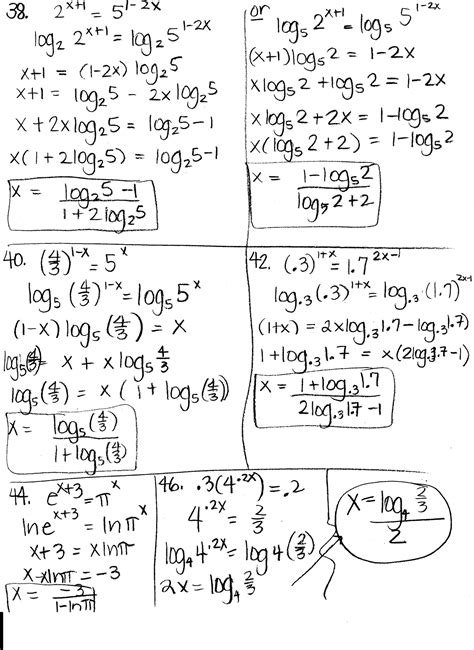 38. 2^{x+1} = 5^{1-2x}
log₂ 2^{x+1} = log₂ 5^{1-2x}
x+1 = (1-2x) log₂5
x+1 = log₂5 - 2xlog₂5
x + 2xlog₂5 = log₂5-1
x(1+2log₂5) = log₂5-1
x = \frac{log₂5-1}{1+2log₂5}
or log₅ 2^{x+1} = log₅ 5^{1-2x}
(x+1)log₅2 = 1-2x
xlog₅2 + log₅2 = 1-2x
xlog₅2 + 2x = 1-log₅2
x(log₅2+2) = 1-log₅2
x = \frac{1-log₅2}{log₅2+2}
40. (\frac{4}{3})^{1-x} = 5^x
log₅(\frac{4}{3})^{1-x} = log₅5^x
(1-x)log₅(\frac{4}{3}) = x
log₅(\frac{4}{3}) = x + xlog₅\frac{4}{3}
log₅(\frac{4}{3}) = x(1+log₅(\frac{4}{3}))
x = \frac{log₅(\frac{4}{3})}{1+log₅(\frac{4}{3})}
42. (.3)^{1+x} = 1.7^{2x-1}
log.₃(.3)^{1+x} = log.₃(1.7)^{2x-1}
(1+x) = 2xlog.₃1.7 - log.₃1.7)
1+log.₃1.7 = x(2log.₃1.7-1)
x = \frac{1+log.₃1.7}{2log.₃1.7-1}
44. e^{x+3} = π^x
lne^{x+3} = lnπ^x
x+3 = xlnπ
x-xlnπ = -3
x = \frac{-3}{1-lnπ}
46. .3(4^{.2x}) = .2
4^{.2x} = \frac{2}{3}
log₄4^{.2x} = log4(\frac{2}{3})
2x = log₄\frac{2}{3}
x = \frac{log₄\frac{2}{3}}{2}